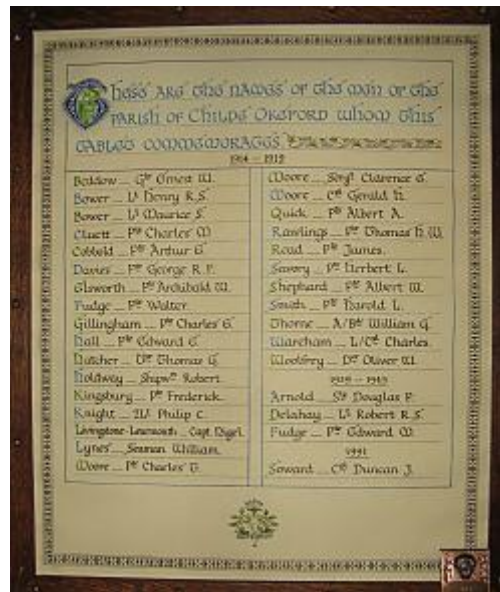 These are the names of the men of the
parish of Childe Okeford whom this
tablet commemorates
1914 – 1919
Beddow — Gnr Ernest W.
Bower — Lt Henry R.S.
Bower — Lt Maurice S.
Cluett — Pte Charles W
Cobbold — Pte Arthur G
Davies — Pte George R. F.
Elsworth — Pte Archibald W.
Fudge — Pte Walter
Gillingham — Pte Charles G.
Hall — Pte Edward G
Hatcher — Thomas G.
Holdway — Shpwt Robert
Kingsbury — Pte Frederick
Knight — 2Lt Philip C.
Livingstone-Learmonth — Capt. Nigel.
Lynes — Seaman William.
Moore — Pte Charles
Moore — Sergt Clarence G.
Moore — Gerald H.
Quick — Pte Albert A.
Rawlings — Pte Thomas H. W.
Read — Pte James.
Savory — Pte Herbert L.
Shephard — Pte Albert W.
Smith — Pte Harold L.
Thorne — A/Bdr William G.
Wareham — L/Cpl Charles
Woolfrey — Oliver W.
1939 – 1945
Arnold — Douglas F.
Delahay — Lt Robert R.S.
Fudge — Pte Edward W.
1991
Soward — Duncan J.